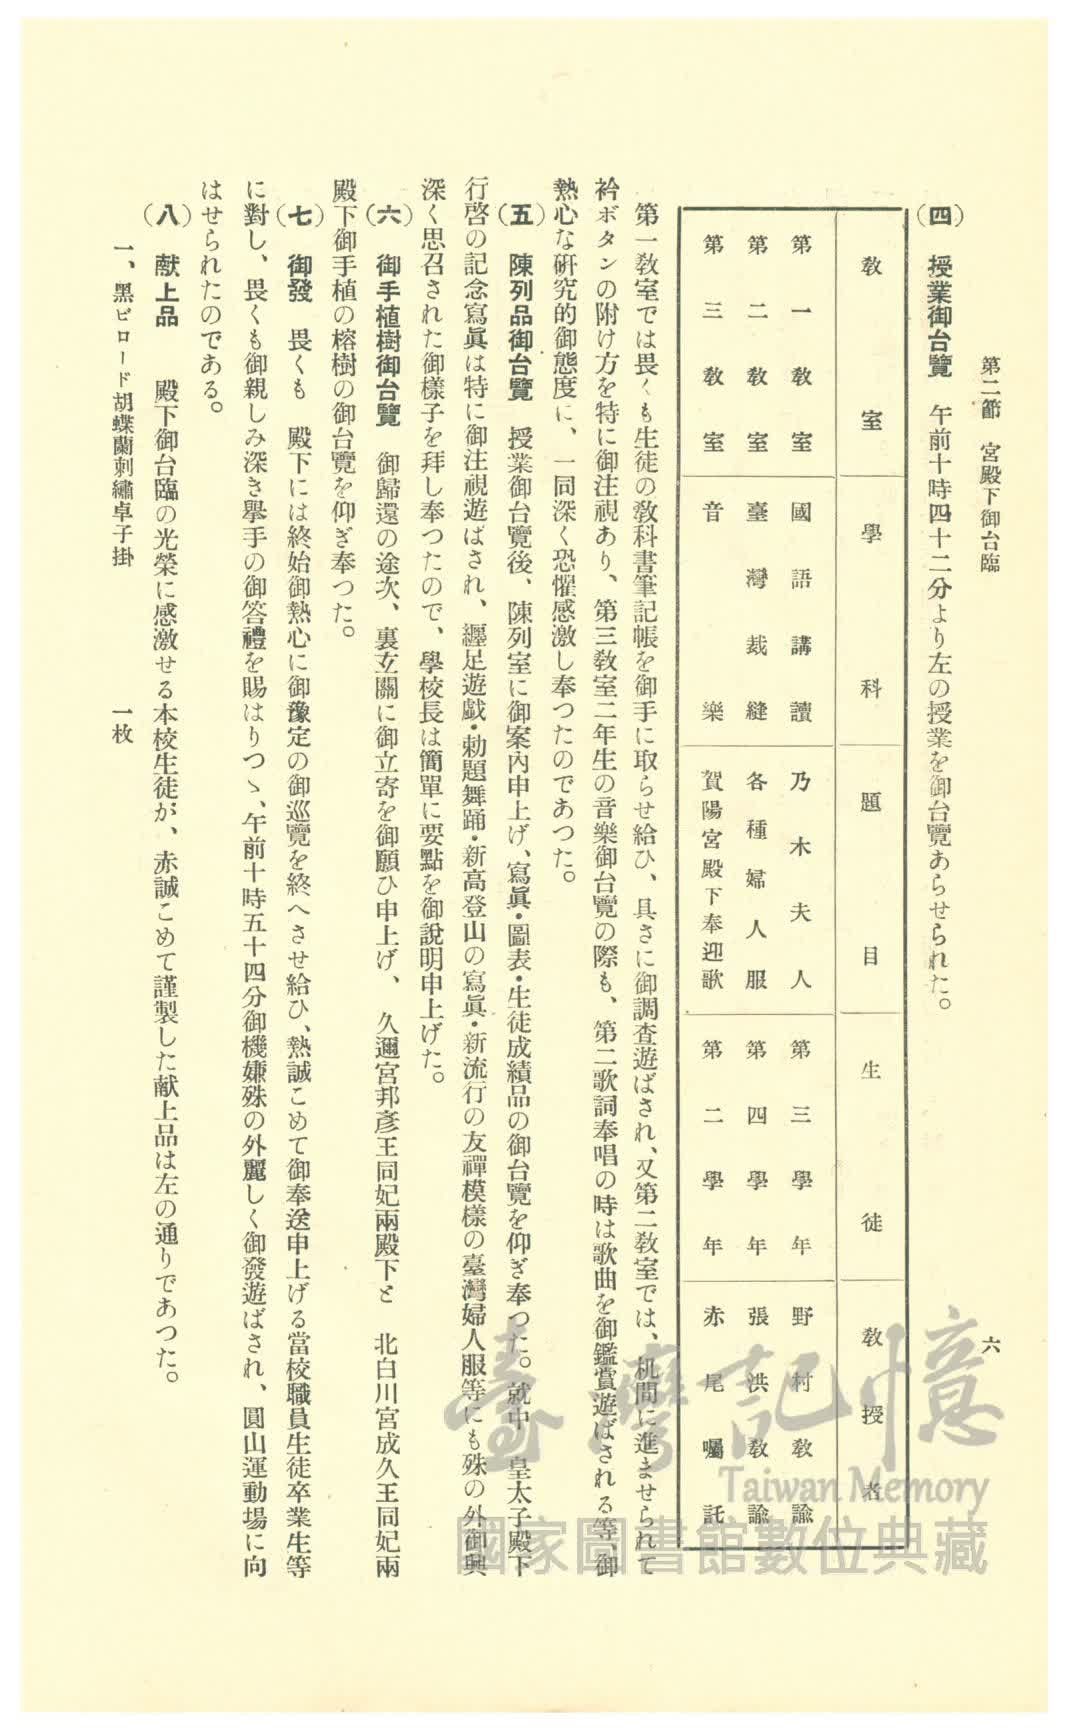 第二節　宮殿下御台臨
六
(四)　授業御台覽　午前十時四十二分より左の授業を御台覽あらせられた。
敎室　學科　題目　生徒　敎授者
第一敎室　國語講讀　乃木夫人　第三學年　野村敎諭
第二敎室　臺灣裁縫　各種婦人服　第四學年　張洪敎諭
第三敎室　音樂　賀陽宮殿下奉迎歌　第二學年　赤尾囑託
第一敎室では畏くも生徒の敎科書筆記帳を御手に取らせ給ひ、具さに御調査遊ばされ、又第二敎室では、机間に進ませられて
衿ボタンの附け方を特に御注視あり、第三敎室二年生の音樂御台覽の際も、第二歌詞奉唱の時は歌曲を御鑑賞遊ばされる等、御
熱心な硏究的御態度に、一同深く恐懼感激し奉つたのであつた。
(五)　陳列品御台覽　授業御台覽後、陳列室に御案內申上げ、寫眞・圖表・生徒成績品の御台覽を仰ぎ奉つた。就中　皇太子殿下
行啓の記念寫眞は特に御注視遊ばされ、纏足遊戲・勅題舞踊・新高登山の寫眞・新流行の友禪模樣の臺灣婦人服等にも殊の外御興
深く思召された御樣子を拜し奉つたので、學校長は簡單に要點を御說明申上げた。
(六)　御手植樹御台覽　御歸還の途次、裏玄關に御立寄を御願ひ申上げ、久邇宮邦彥王同妃兩殿下と　北白川宮成久王同妃兩
殿下御手植の榕樹の御台覽を仰ぎ奉つた。
(七)　御發　畏くも　殿下には終始御熱心に御豫定の御巡覽を終へさせ給ひ、熱誠こめて御奉送申上げる當校職員生徒卒業生等
に對し、畏くも御親しみ深き擧手の御答禮を賜はりつゝ、午前十時五十四分御機嫌殊の外麗しく御發遊ばされ、圓山運動場に向
はせられたのである。
(八)　献上品　殿下御台臨の光榮に感激せる本校生徒が、赤誠こめて謹製した献上品は左の通りであつた。
一、黑ビロード胡蝶蘭刺繡卓子掛　一枚
臺灣記憶
Taiwan Memory
國家圖書館數位典藏